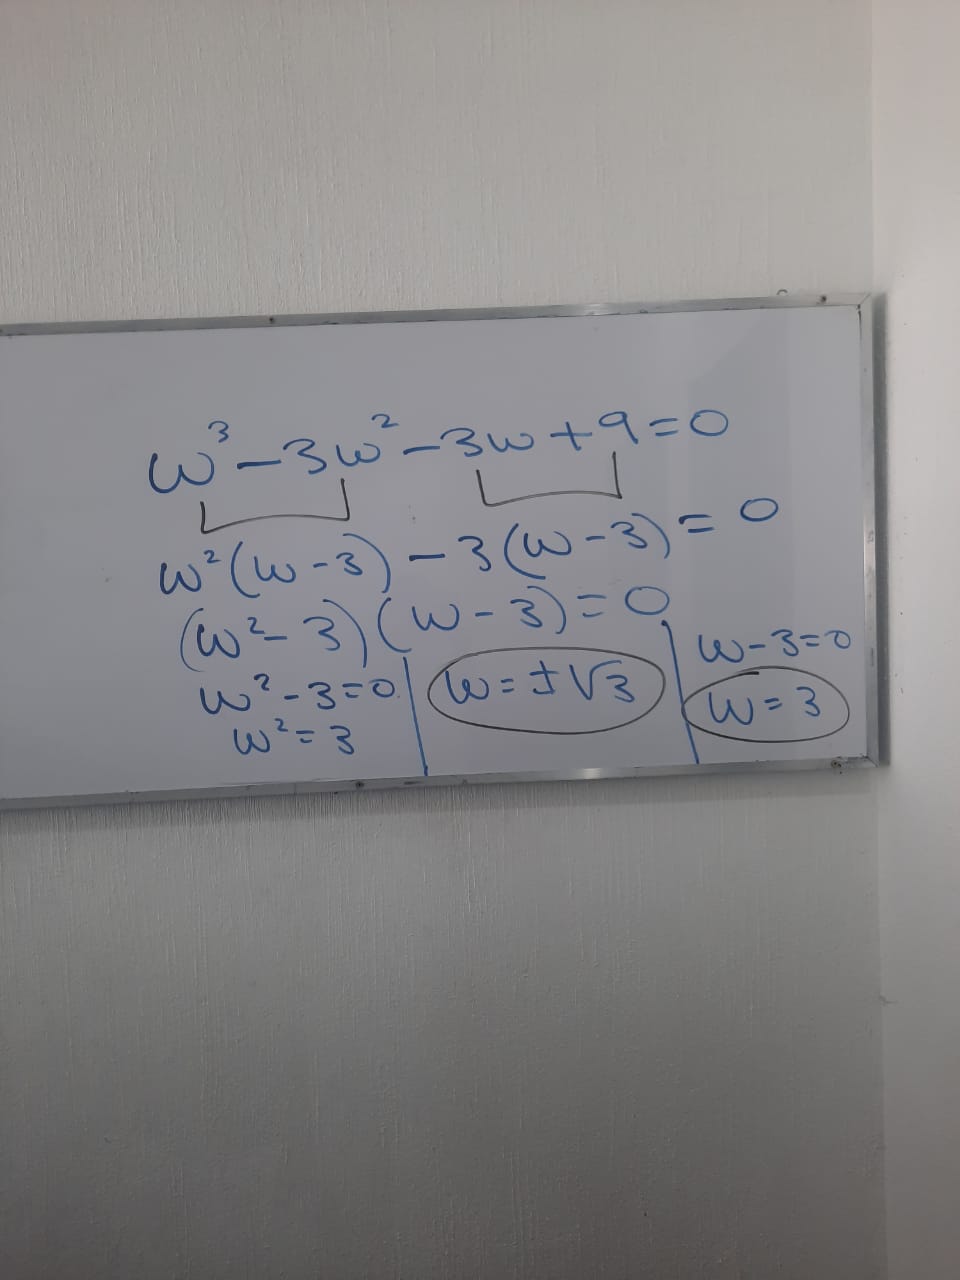 w³-3w²-3w+9=0
w²(w-3)-3(w-3)=0
(w²-3)(w-3)=0
w²-3=0
w²=3
w=±√3
w-3=0
w=3